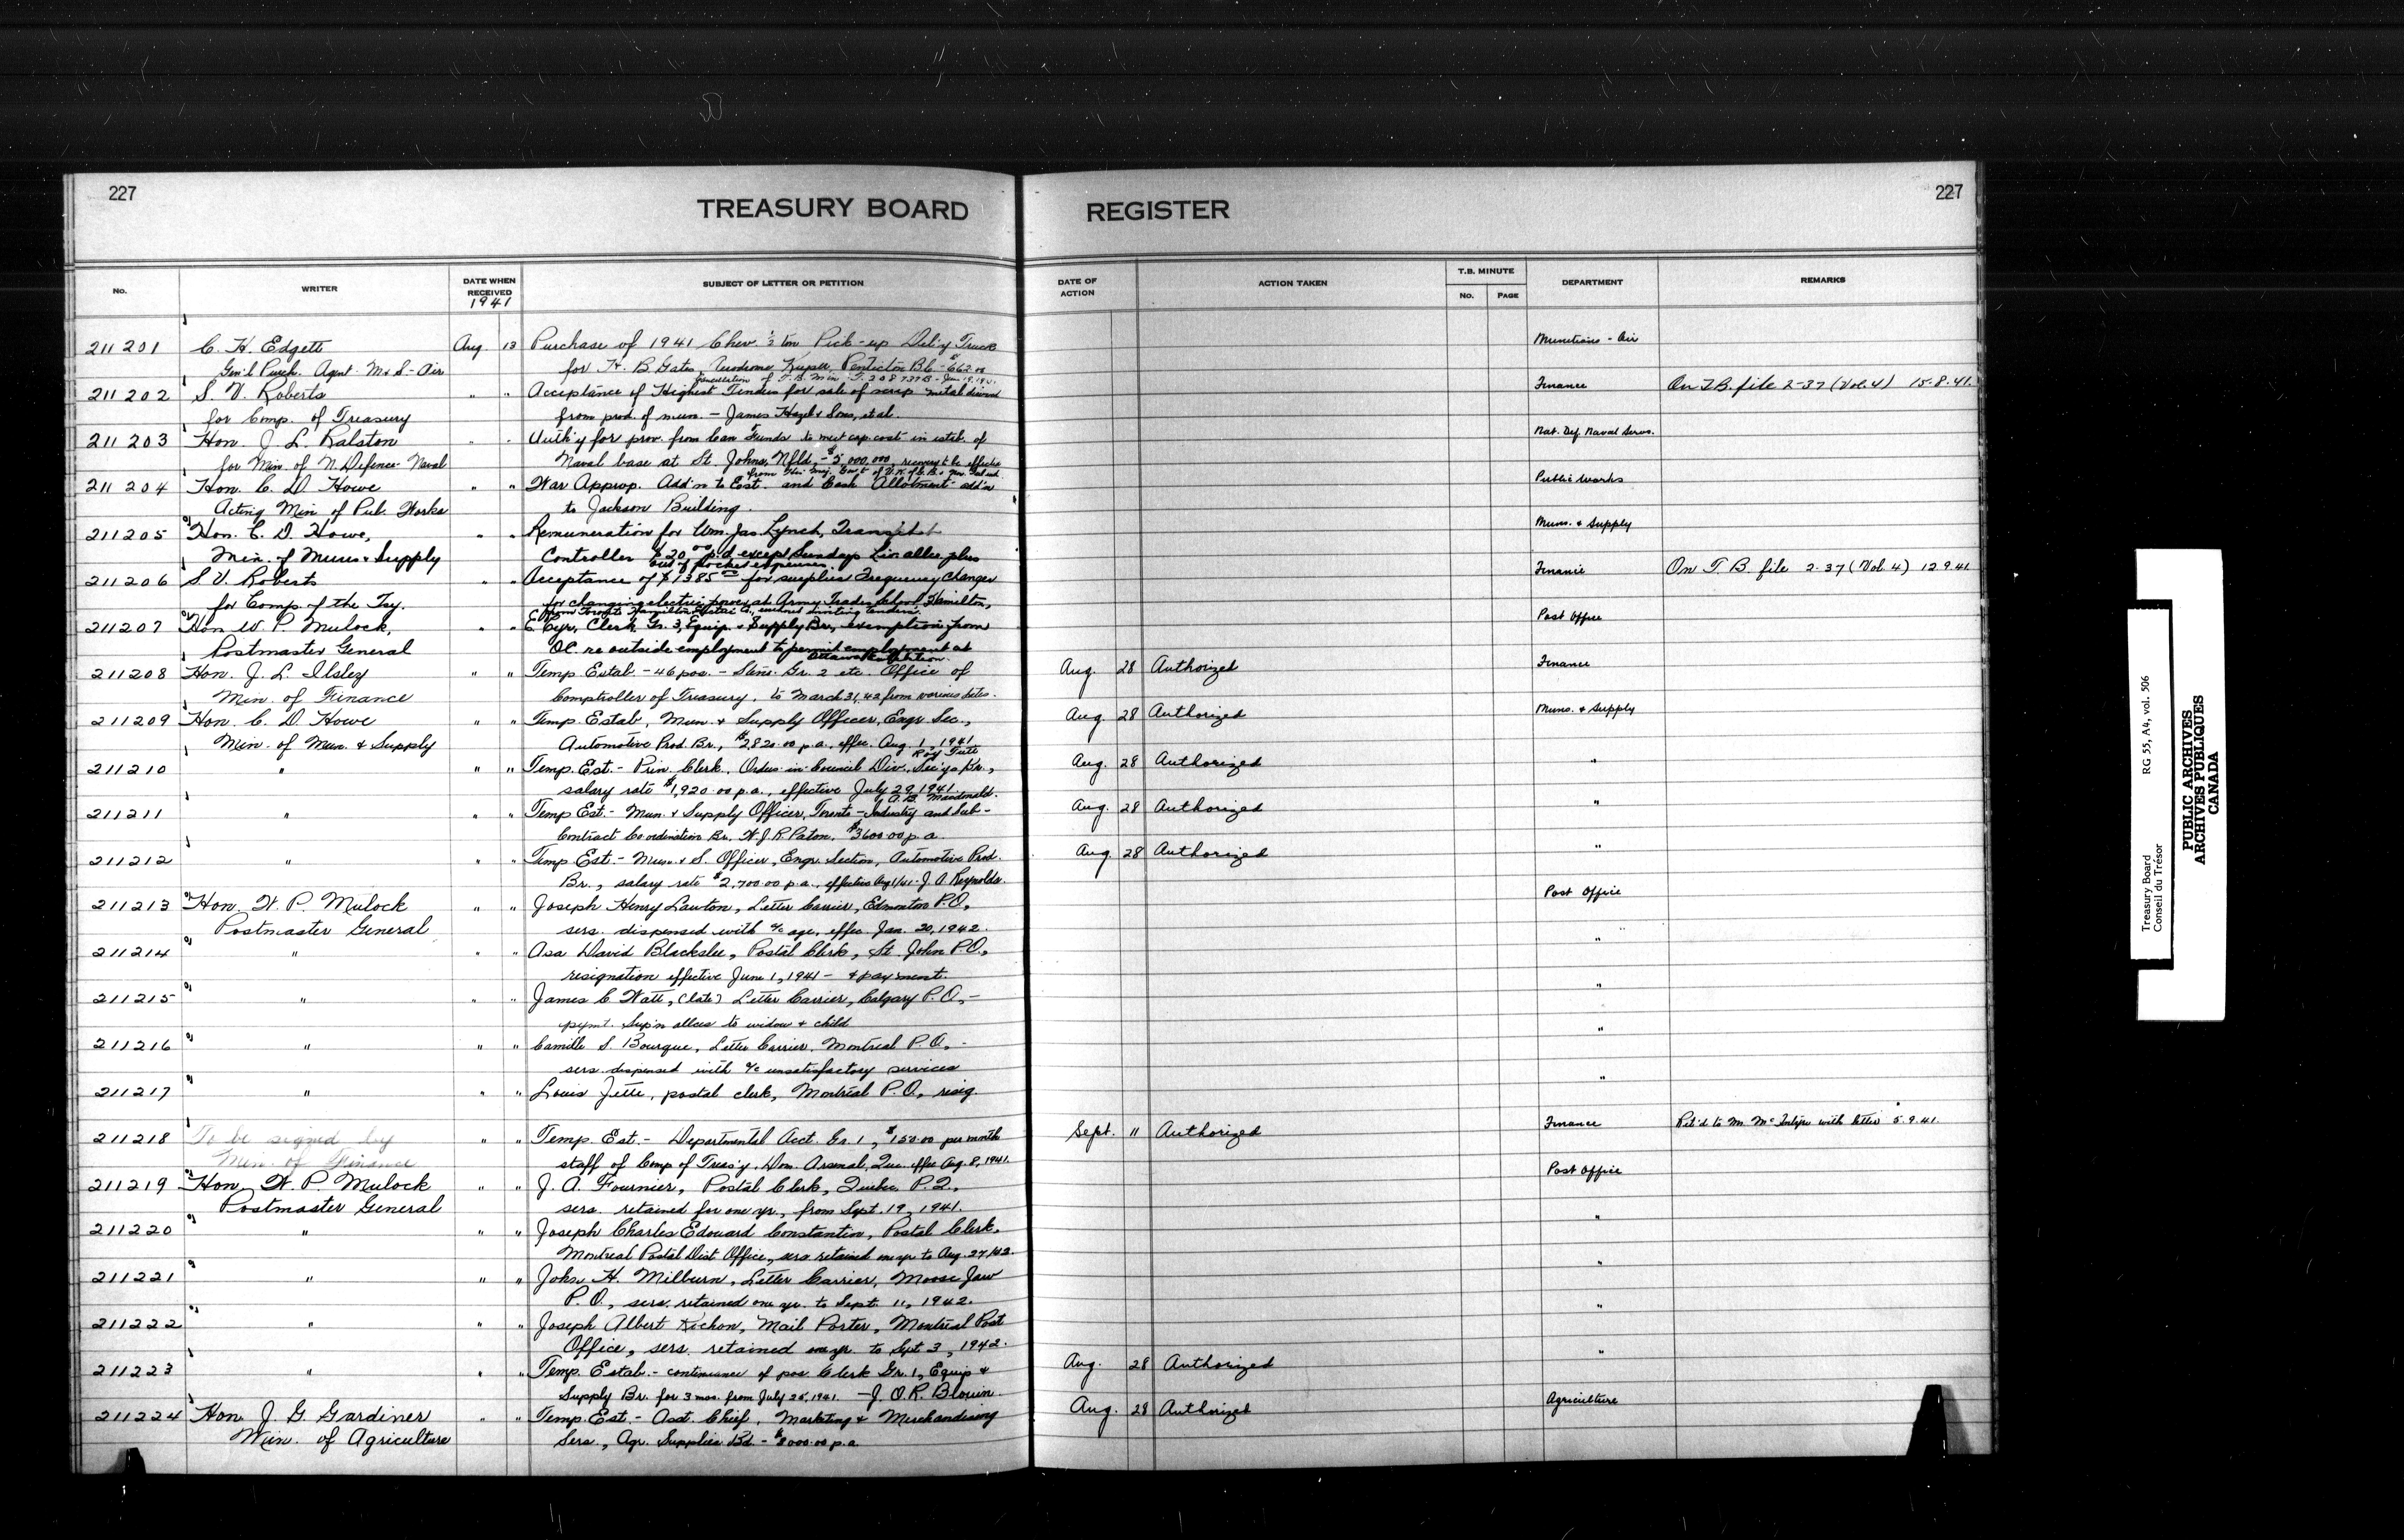 227
TREASURY BOARD REGISTER
227
No. WRITER DATE WHEN RECEIVED 1941 SUBJECT OF LETTER OR PETITION DATE OF ACTION ACTION TAKEN T.B. MINUTE No. PAGE DEPARTMENT REMARKS
211201 C. H. Edgett Aug. 13 Purchase of 1941 Chev ½ ton Pick-up Del'y Truck Munitions - Air
Gen'l Purch. Agent - M & S - Air for H. B. Gates, Aerodrome Keeper, Penticton B.C. - $662.00
Cancellation of T.B. Min. T.
211202 S. V. Roberts " " Acceptance of Highest Tenders for sale of scrap metal derived Finance On T.B. file 2-37 (Vol. 4) 15.8.41.
for Comp. of Treasury from prod. of mun. - James Hazel & Sons, et al.
211203 Hon. J. L. Ralston " " Auth'y for prov. from Can Funds to meet cap. cost in estab. of Nat. Def. Naval Servs.
for Min. of N. Defence - Naval Naval base at St. Johns, Nfld. - $5,000,000, recovery to be effected
from His Maj. Gov't of U.K. of G.B. &
211204 Hon. C. D. Howe " " War Approp. Add'n to Est. and Cash Allotment add'n Public Works
Acting Min of Pub. Works to Jackson Building.
211205 Hon. C. D. Howe, " " Remuneration for Wm. Jas. Lynch, Transit Muns. & Supply
Min. of Muns & Supply Controller $20.00 p.d. except Sundays Liv. allce. plus
out of pocket expenses.
211206 S. V. Roberts " " Acceptance of $1385.00 for surplus Frequency Changer Finance On T. B. file 2-37 (Vol. 4) 12.9.41
for Comp. of the Tsy. for changing electric power at Army Trades School Hamilton,
from Toronto Hamilton without inviting tenders.
211207 Hon W. P. Mulock, " " E Cyr, Clerk Gr. 3, Equip. & Supply Br., exemption from Post Office
Postmaster General OC. re outside employment to permit employment at
Ottawa Exhibition.
211208 Hon. J. L. Ilsley " " Temp Estab - 46 pos. - Steno. Gr. 2 etc. Office of Aug. 28 Authorized Finance
Min. of Finance Comptroller of Treasury, to March 31, 42 from various dates.
211209 Hon. C. D. Howe " " Temp. Estab, Mun. & Supply Officer, Engr. Sec., Aug. 28 Authorized Muns. & Supply
Min. of Mun. & Supply Automotive Prod. Br., $2820.00 p.a., effec. Aug. 1, 1941
Roy Tuti
211210 " " " Temp. Est. - Prin. Clerk, Orders-in-Council Div., Sec'ys Br., Aug. 28 Authorized "
salary rate $1,920.00 p.a., effective July 29, 1941
A. B. Macdonald.
211211 " " " Temp Est. - Mun. & Supply Officer, Toronto - Industry and Sub- Aug. 28 Authorized "
Contract Co-ordination Br. W. J. R. Paton. $3600.00 p.a.
211212 " " " Temp Est. - Mun. & S. Officer, Engr. Section, Automotive Prod. Aug. 28 Authorized "
Br., salary rate $2,700.00 p.a., effective Aug 1/41 - J. A. Reynolds.
211213 Hon. W. P. Mulock " " Joseph Henry Lawton, Letter Carrier, Edmonton P.O., Post Office
Postmaster General sers. dispensed with a/c age, effec. Jan. 20, 1942.
211214 " " " Asa David Blackslee, Postal Clerk, St. John P.O., "
resignation effective June 1, 1941 - & payment.
211215 " " " James C. Watt, (late) Letter Carrier, Calgary P.O., - "
pymt. Sup'n allces to widow & child
211216 " " " Camille S. Bourque, Letter Carrier, Montreal P.O., - "
sers. dispensed with a/c unsatisfactory services
211217 " " " Louis Jette, postal clerk, Montreal P.O., resig. "
211218 To be signed by " " Temp. Est. - Departmental Acct. Gr. 1, $150.00 per month Sept. 11 Authorized Finance Ret'd to Mr. McIntyre with letter 5.9.41.
Min. of Finance staff of Comp of Treas'y, Dom. Arsenal, Que. effec Aug. 8, 1941.
211219 Hon. W. P. Mulock " " J. A. Fournier, Postal Clerk, Quebec P.Q., Post Office
Postmaster General sers. retained for one yr., from Sept. 19, 1941.
211220 " " " Joseph Charles Edouard Constantin, Postal Clerk, "
Montreal Postal Dist Office, sers. retained one yr. to Aug. 27/42.
211221 " " " John H. Milburn, Letter Carrier, Moose Jaw "
P.O., sers. retained one yr. to Sept. 11, 1942.
211222 " " " Joseph Albert Richon, Mail Porter, Montreal Post "
Office, sers. retained one yr. to Sept 3, 1942.
211223 " " " Temp. Estab. - continuance of pos. Clerk Gr. 1, Equip & Aug. 28 Authorized "
Supply Br. for 3 mos. from July 25, 1941. - J. O. R. Blouin.
211224 Hon. J. G. Gardiner " " Temp. Est. - Asst. Chief, Marketing & Merchandising Aug. 28 Authorized Agriculture
Min. of Agriculture Sers., Agr. Supplies Bd. - $8000.00 p.a.
Treasury Board RG 55, A4, vol. 506
Conseil du Trésor
PUBLIC ARCHIVES
ARCHIVES PUBLIQUES
CANADA